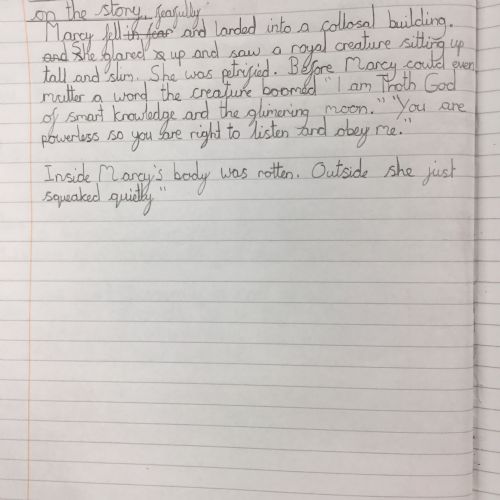 on the story. feafully
Marcy fell in fear and landed into a collosal building.
and She glared up and saw a royal creature sitting up
tall and slim. She was petrified. Before Marcy could even
mutter a word the creature boomed "I am Thoth God
of smart knowledge and the glimering moon." "You are
powerless so you are right to listen and obey me."
Inside Marcy's body was rotten. Outside she just
squeaked quietly"